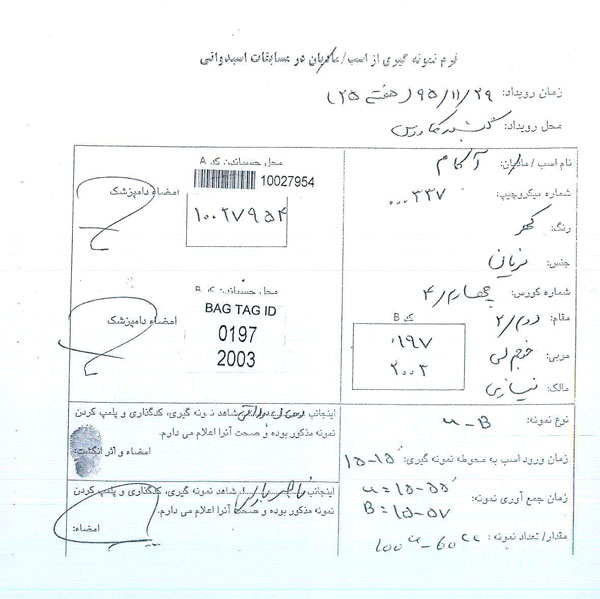 فرم نمونه گیری از اسب/ مادیان در مسابقات اسبدوانی
زمان رویداد: ۹۵/۱۱/۲۹ (هفته ۲۵)
محل رویداد: گنبد کاووس
نام اسب / مادیان: آکام
شماره میکروچیپ: ۰۰۰۳۳۷
رنگ: کهر
جنس: نریان
شماره کورس: چهارم/۴
مقام: دوم/۲
کد B
۰۱۹۷
۲۰۰۳
مربی: خوجملی
مالک: نیازی
محل چسباندن کد A
10027954
۱۰۰۲۷۹۵۴
امضاء دامپزشک
محل چسباندن کد B
BAG TAG ID
0197
2003
امضاء دامپزشک
نوع نمونه: u-B
زمان ورود اسب به محوطه نمونه گیری: ۱۵-۱۵
زمان جمع آوری نمونه: u=۱۵-۵۵
B=۱۵-۵۷
مقدار/ تعداد نمونه:
اینجانب شاهد نمونه گیری، کدگذاری و پلمپ کردن
نمونه مذکور بوده و صحت آنرا اعلام می دارم.
امضاء و اثر انگشت:
اینجانب شاهد نمونه گیری، کدگذاری و پلمپ کردن
نمونه مذکور بوده و صحت آنرا اعلام می دارم.
امضاء: